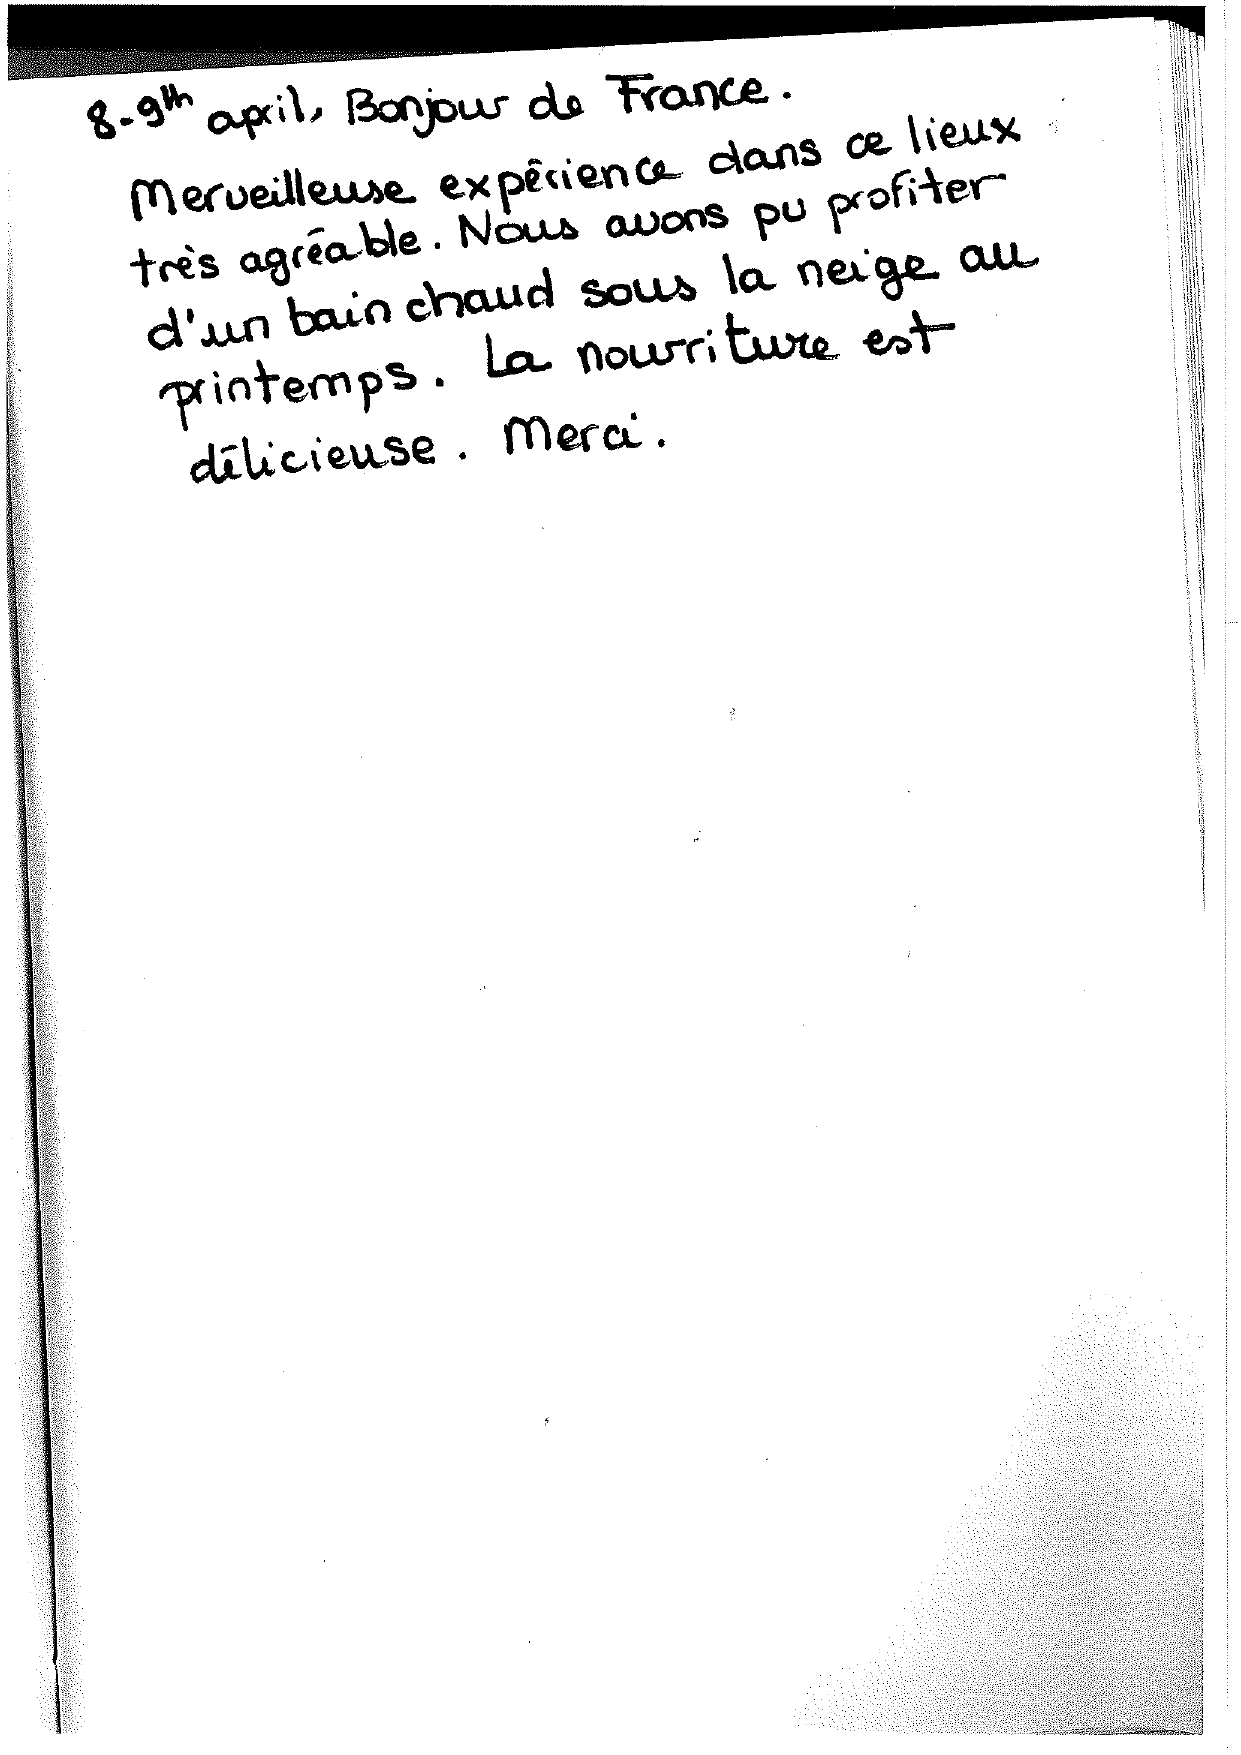 8-9th april, Bonjour de France.
Merveilleuse expérience dans ce lieux
très agréable. Nous avons pu profiter
d'un bain chaud sous la neige au
printemps. La nourriture est
délicieuse. Merci.